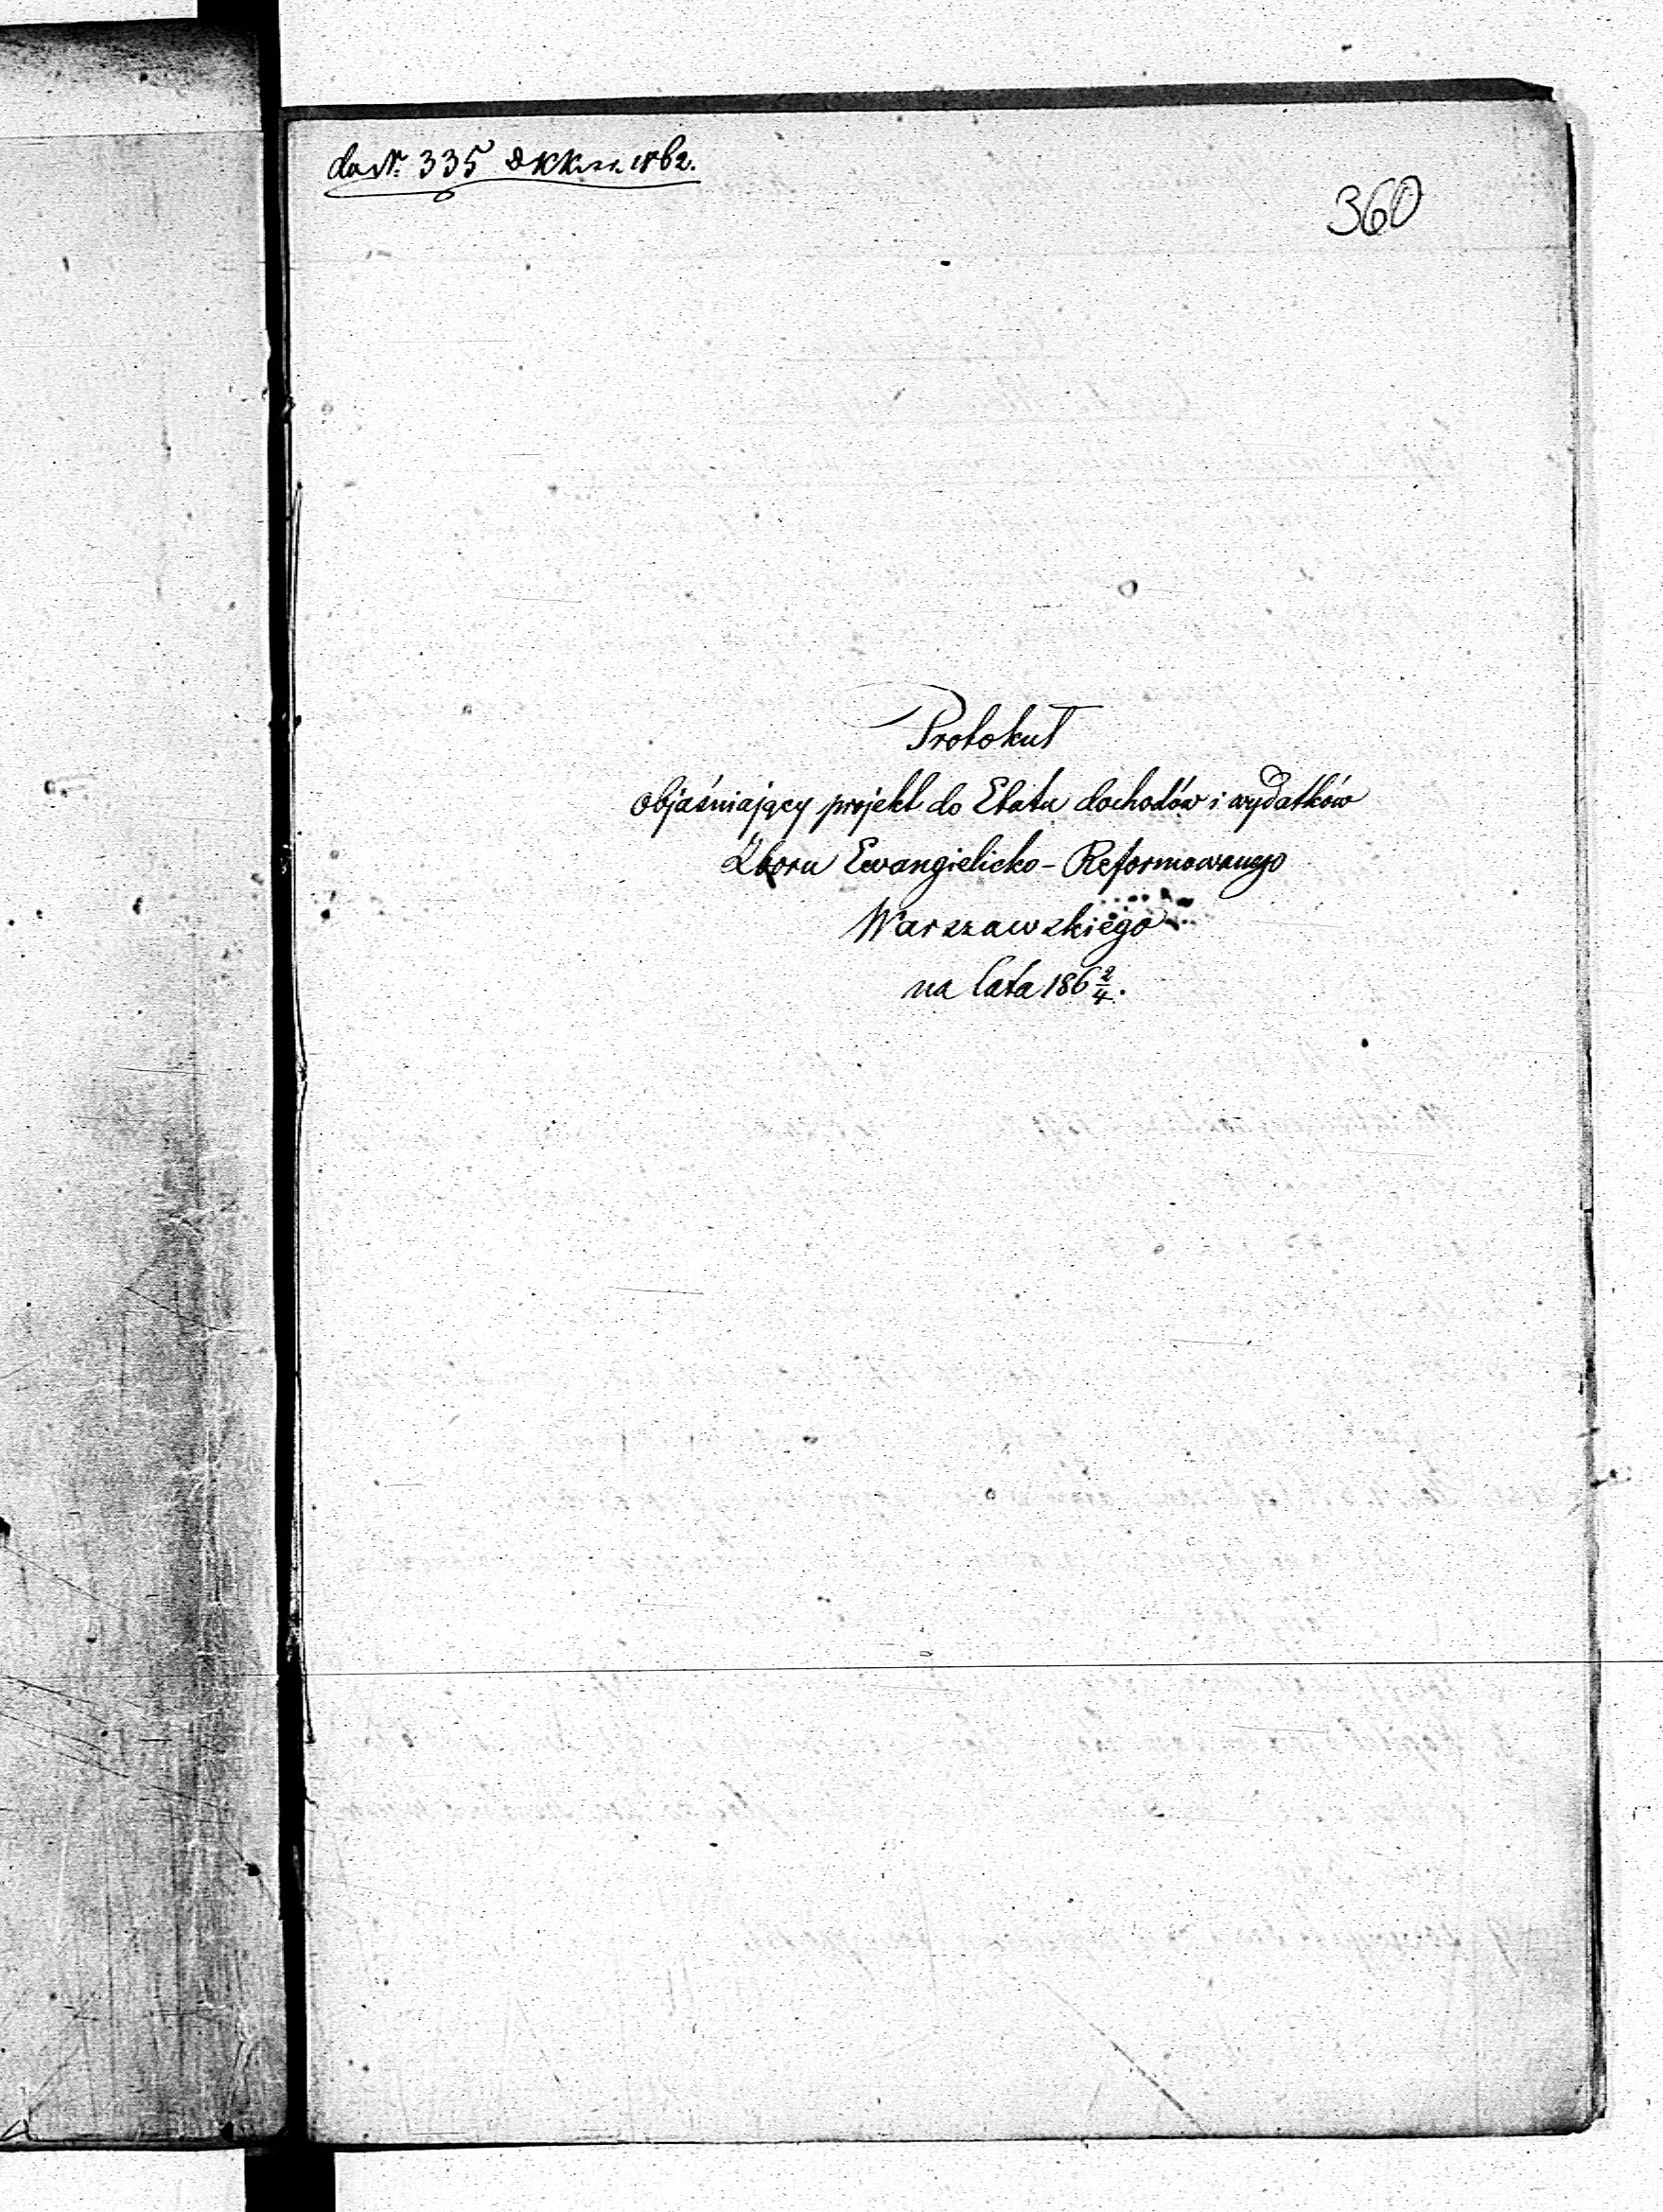 do Nr. 335 1862.
360
Protokuł
objaśniający projekt do Etatu dochodów i wydatków
Zboru Ewangielicko-Reformowanego
Warszawskiego
na lata 186 2/4.